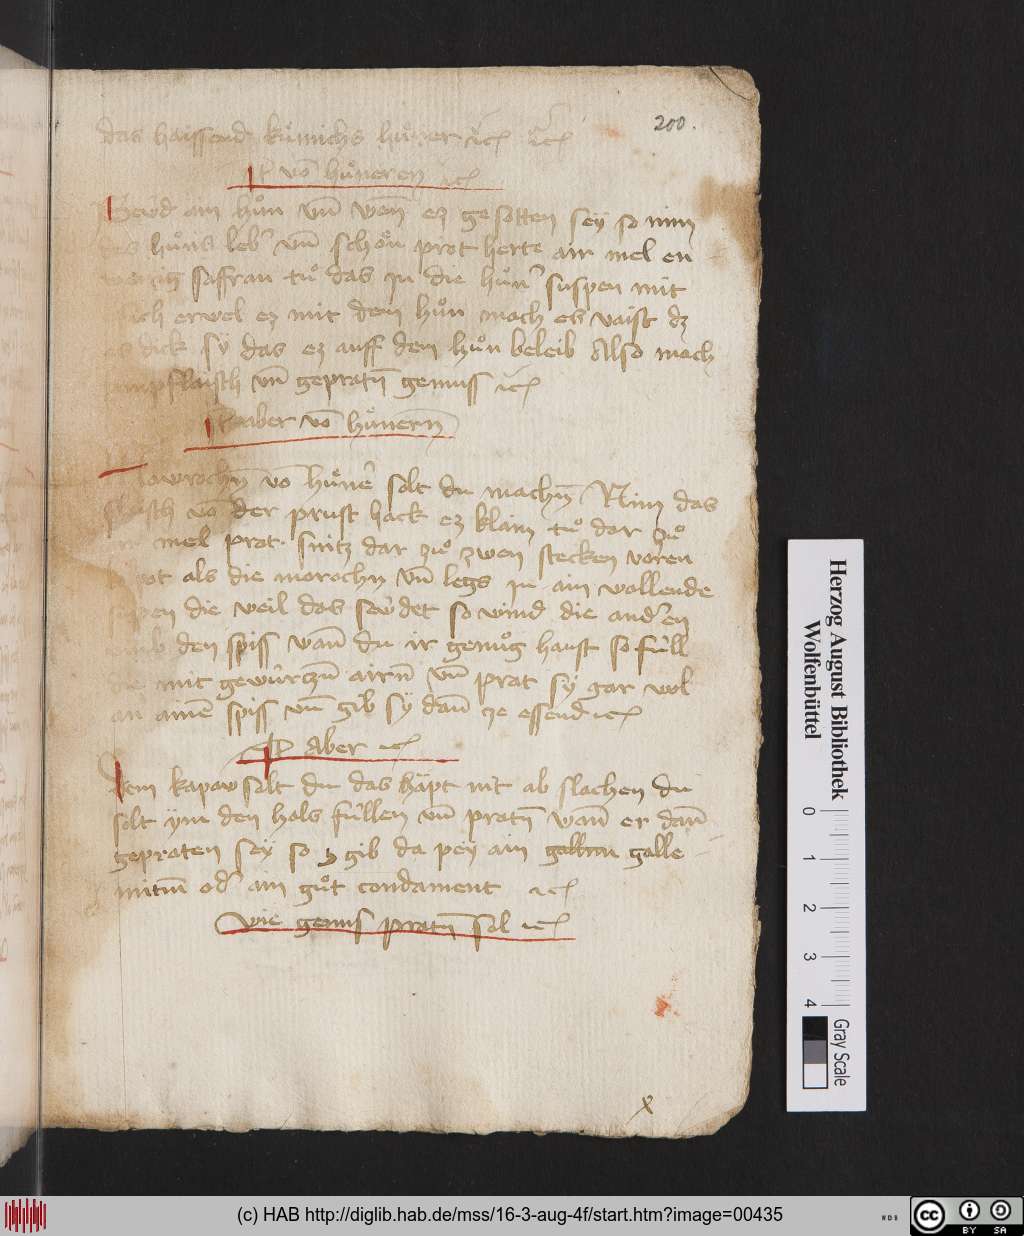 200.
das haissend kúmichs húner ꝛc ꝛc
vō hůneren ꝛc
Sewd ain hůn vn̄ wen ez gesotten seÿ so nim
hůns leb' vn̄ schön prot herte air mel en
saffran tů das in die hůn' suppen mit
erwel ez mit dem hůn mach es vaist dz
dick sÿ das ez auff dem hůn beleib Also mach
vn̄ gepratn̄ gemuss ꝛc
aber vō hůnern̄
vō hůnē solt du machn̄ Nim das
vō der prust hack ez klain tů dar zů
mel prot snitz dar zů zwen stecken voren
als die morochn vn̄ legs in ain wallende
die weil das sewdet so wind die and'en
den spiss wan̄ du ir genůg hast so full
mit gewúrczn̄ airn̄ vn̄ prat sÿ gar wol
an ainē spiss vn̄ gib sÿ dan̄ ze essend ꝛc
Aber ꝛc
Dem kapaw solt du das hapt nit ab slachen du
solt ym den hals fúllen vn̄ pratn̄ wan̄ er dan̄
gepraten seÿ so gib da peÿ ain galle
od' ain gůt condament ꝛc
wie gems pratn̄ sol ꝛc
x
Herzog August Bibliothek
Wolfenbüttel
0 1 2 3 4
Gray Scale
(c) HAB http://diglib.hab.de/mss/16-3-aug-4f/start.htm?image=00435
WDB
cc BY SA